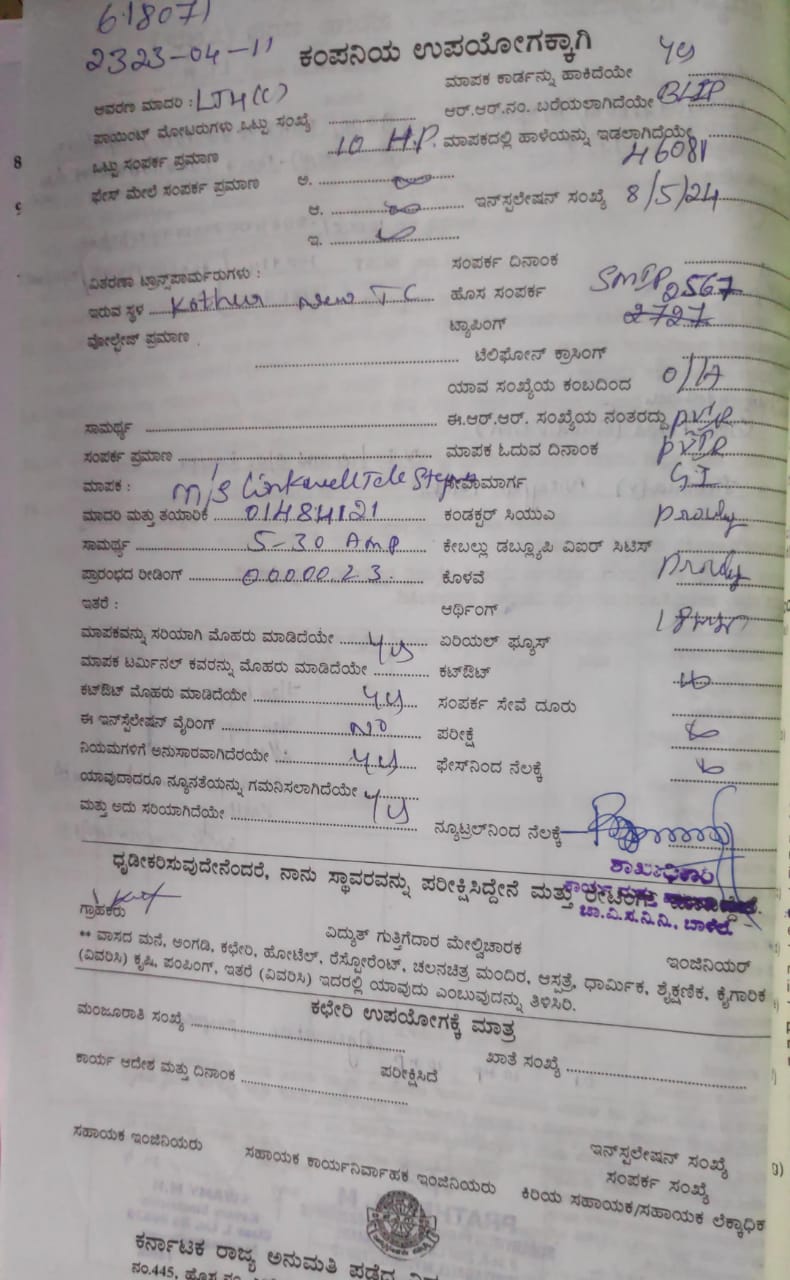 618071
2323-04-11
ಕಂಪನಿಯ ಉಪಯೋಗಕ್ಕಾಗಿ
ಆವರಣ ಮಾದರಿ : LT4(C)
ಪಾಯಿಂಟ್ ಮೋಟರುಗಳು ಒಟ್ಟು ಸಂಖ್ಯೆ
ಒಟ್ಟು ಸಂಪರ್ಕ ಪ್ರಮಾಣ 10 H.P.
ಫೇಸ್ ಮೇಲೆ ಸಂಪರ್ಕ ಪ್ರಮಾಣ ಅ.
ಆ.
ಇ.
ಮಾಪಕ ಕಾರ್ಡನ್ನು ಹಾಕಿದೆಯೇ yes
ಆರ್.ಆರ್.ನಂ. ಬರೆಯಲಾಗಿದೆಯೇ BLIP
ಮಾಪಕದಲ್ಲಿ ಹಾಳೆಯನ್ನು ಇಡಲಾಗಿದೆಯೇ 46081
ಇನ್‌ಸ್ಪಲೇಷನ್ ಸಂಖ್ಯೆ 8/5/24
ವಿತರಣಾ ಟ್ರಾನ್ಸ್‌ಫಾರ್ಮರುಗಳು :
ಇರುವ ಸ್ಥಳ Kothur New TC
ವೋಲ್ಟೇಜ್ ಪ್ರಮಾಣ
ಸಂಪರ್ಕ ದಿನಾಂಕ
ಹೊಸ ಸಂಪರ್ಕ SMIP 2567
ಟ್ಯಾಪಿಂಗ್ 2727
ಟೆಲಿಫೋನ್ ಕ್ರಾಸಿಂಗ್
ಯಾವ ಸಂಖ್ಯೆಯ ಕಂಬದಿಂದ O/H
ಸಾಮರ್ಥ್ಯ
ಈ.ಆರ್.ಆರ್. ಸಂಖ್ಯೆಯ ನಂತರದ್ದು
ಸಂಪರ್ಕ ಪ್ರಮಾಣ
ಮಾಪಕ ಓದುವ ದಿನಾಂಕ
ಮಾಪಕ : M/s Linkwell Tele
ಸೇವಾಮಾರ್ಗ G.I
ಮಾದರಿ ಮತ್ತು ತಯಾರಿಕೆ 01484121
ಕಂಡಕ್ಟರ್ ಸಿಯುಎ
ಸಾಮರ್ಥ್ಯ 5-30 Amp
ಕೇಬಲ್ಲು ಡಬ್ಲ್ಯೂಪಿ ವಿಐರ್ ಸಿಟಿಸ್
ಪ್ರಾರಂಭದ ರೀಡಿಂಗ್ 0000023
ಕೊಳವೆ
ಇತರೆ :
ಆರ್ಥಿಂಗ್
ಮಾಪಕವನ್ನು ಸರಿಯಾಗಿ ಮೊಹರು ಮಾಡಿದೆಯೇ yes
ಏರಿಯಲ್ ಫ್ಯೂಸ್
ಮಾಪಕ ಟರ್ಮಿನಲ್ ಕವರನ್ನು ಮೊಹರು ಮಾಡಿದೆಯೇ
ಕಟ್‌ಔಟ್
ಕಟ್‌ಔಟ್ ಮೊಹರು ಮಾಡಿದೆಯೇ yes
ಸಂಪರ್ಕ ಸೇವೆ ದೂರು
ಈ ಇನ್‌ಸ್ಪೆಲೇಷನ್ ವೈರಿಂಗ್ NO
ಪರೀಕ್ಷೆ
ನಿಯಮಗಳಿಗೆ ಅನುಸಾರವಾಗಿದೆರಯೇ yes
ಫೇಸ್‌ನಿಂದ ನೆಲಕ್ಕೆ
ಯಾವುದಾದರೂ ನ್ಯೂನತೆಯನ್ನು ಗಮನಿಸಲಾಗಿದೆಯೇ
ಮತ್ತು ಅದು ಸರಿಯಾಗಿದೆಯೇ yes
ನ್ಯೂಟ್ರಲ್‌ನಿಂದ ನೆಲಕ್ಕೆ
ಶಾಖಾಧಿಕಾರಿ
ಧೃಡೀಕರಿಸುವುದೇನೆಂದರೆ, ನಾನು ಸ್ಥಾವರವನ್ನು ಪರೀಕ್ಷಿಸಿದ್ದೇನೆ ಮತ್ತು
ಚಾ.ವಿ.ಸ.ನಿ.ನಿ.,
ಗ್ರಾಹಕರು
ವಿದ್ಯುತ್ ಗುತ್ತಿಗೆದಾರ ಮೇಲ್ವಿಚಾರಕ
ಇಂಜಿನಿಯರ್
** ವಾಸದ ಮನೆ, ಅಂಗಡಿ, ಕಛೇರಿ, ಹೋಟೆಲ್, ರೆಸ್ಟೋರೆಂಟ್, ಚಲನಚಿತ್ರ ಮಂದಿರ, ಆಸ್ಪತ್ರೆ, ಧಾರ್ಮಿಕ, ಶೈಕ್ಷಣಿಕ, ಕೈಗಾರಿಕ
(ವಿವರಿಸಿ) ಕೃಷಿ, ಪಂಪಿಂಗ್, ಇತರೆ (ವಿವರಿಸಿ) ಇದರಲ್ಲಿ ಯಾವುದು ಎಂಬುವುದನ್ನು ತಿಳಿಸಿರಿ.
ಕಛೇರಿ ಉಪಯೋಗಕ್ಕೆ ಮಾತ್ರ
ಮಂಜೂರಾತಿ ಸಂಖ್ಯೆ
ಖಾತೆ ಸಂಖ್ಯೆ
ಕಾರ್ಯ ಆದೇಶ ಮತ್ತು ದಿನಾಂಕ
ಪರೀಕ್ಷಿಸಿದೆ
ಇನ್‌ಸ್ಪಲೇಷನ್ ಸಂಖ್ಯೆ
ಸಂಪರ್ಕ ಸಂಖ್ಯೆ
ಸಹಾಯಕ ಇಂಜಿನಿಯರು ಸಹಾಯಕ ಕಾರ್ಯನಿರ್ವಾಹಕ ಇಂಜಿನಿಯರು ಕಿರಿಯ ಸಹಾಯಕ/ಸಹಾಯಕ ಲೆಕ್ಕಾಧಿಕ
ಕರ್ನಾಟಕ ರಾಜ್ಯ ಅನುಮತಿ ಪಡೆದ
ನಂ.445, ಹೊಸ